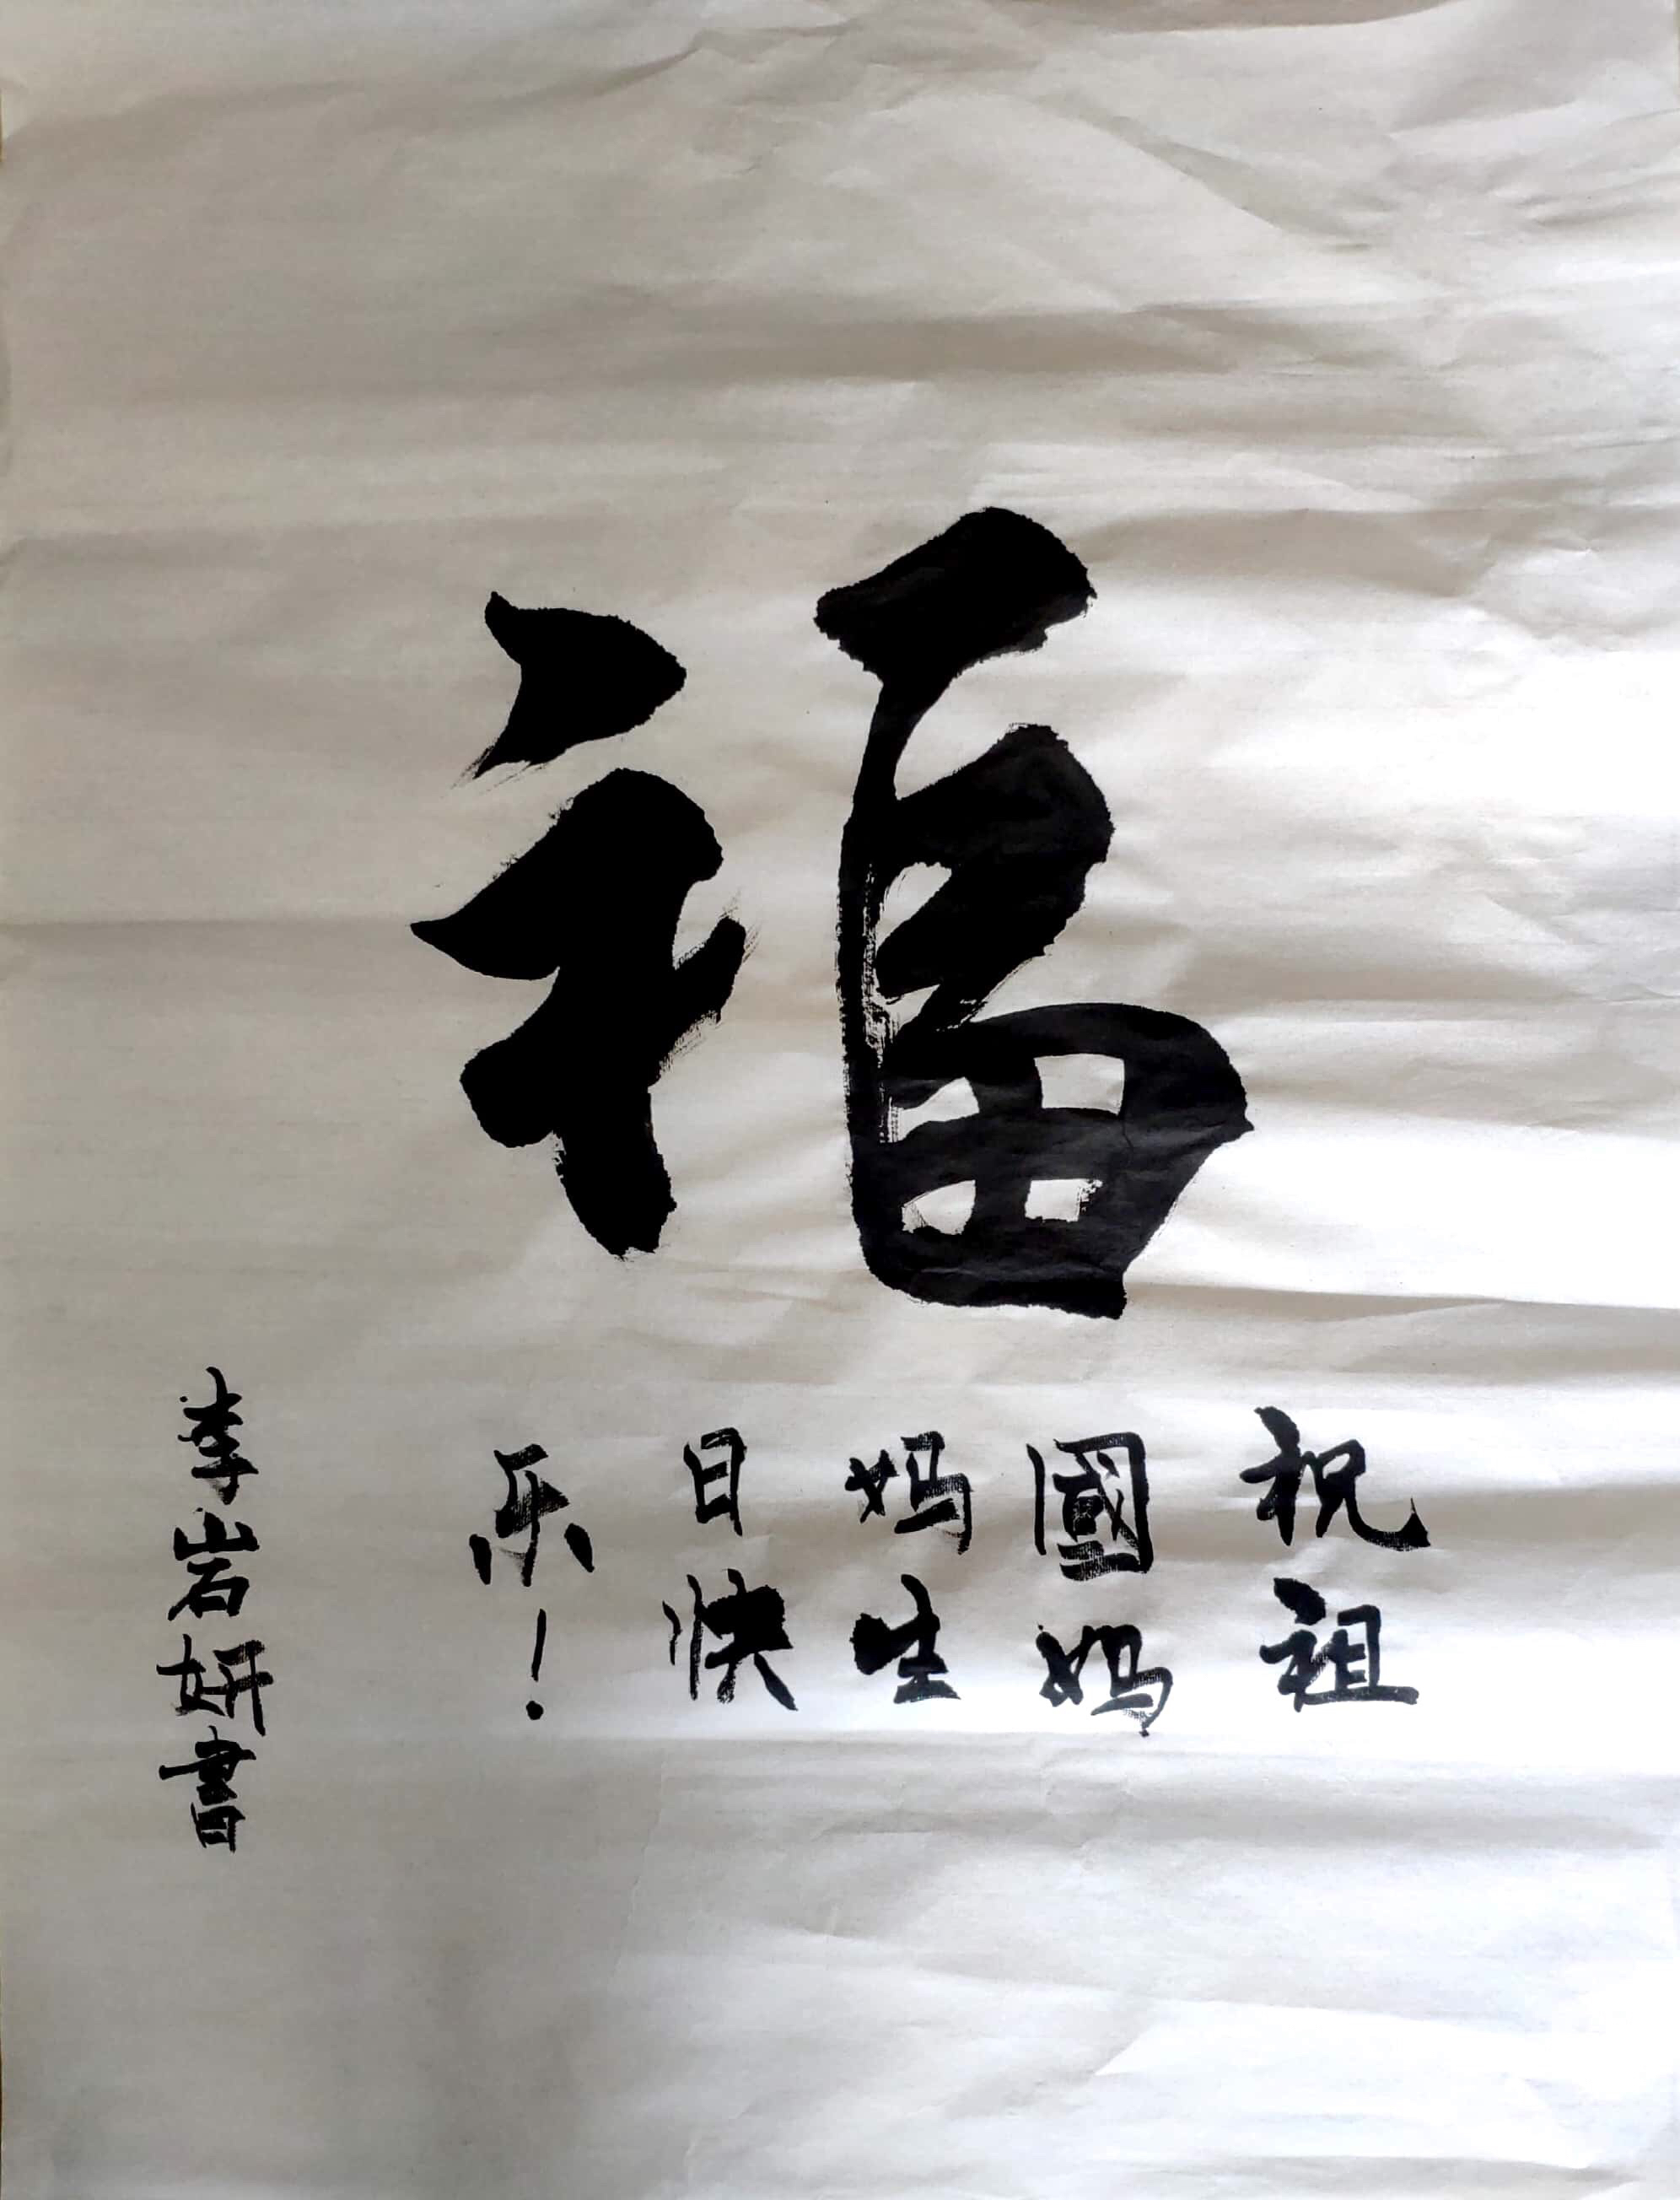 福
祝祖
國妈
妈生
日快
乐！
李岩妍書